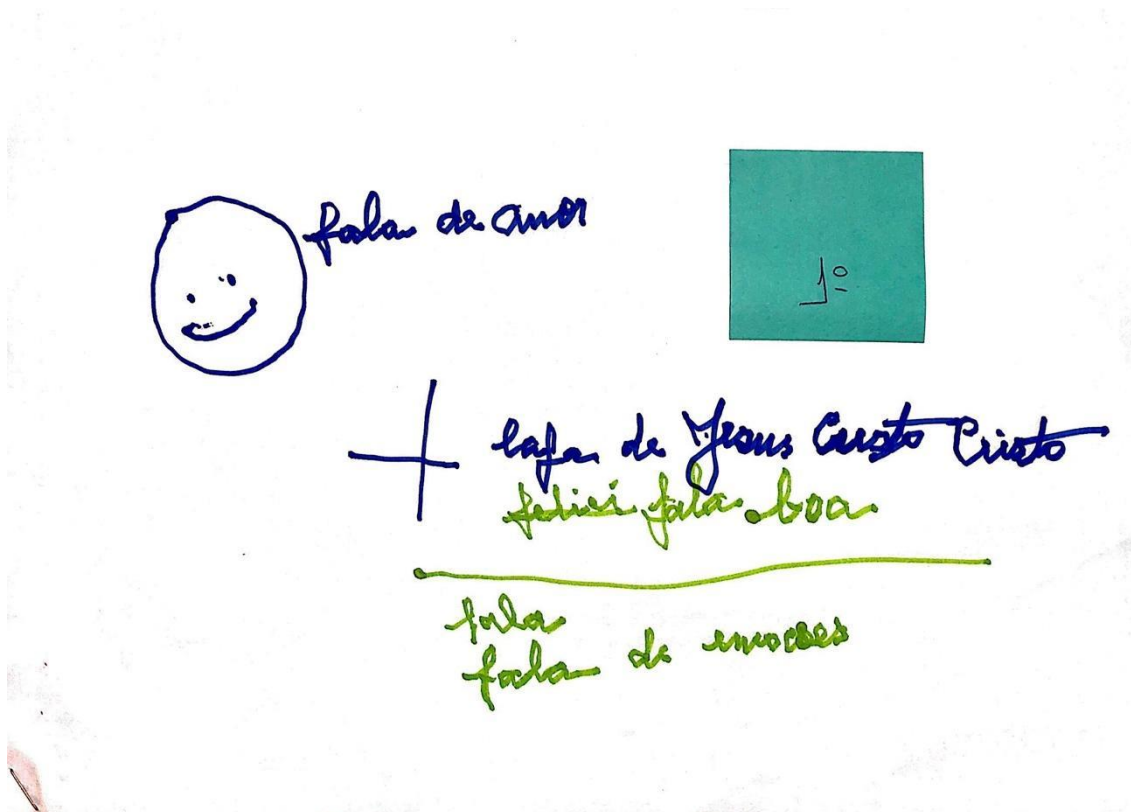 fala de amor
1º
lafa de Jesus Custo Cristo
felici fala boa
fala
fala de emocoes